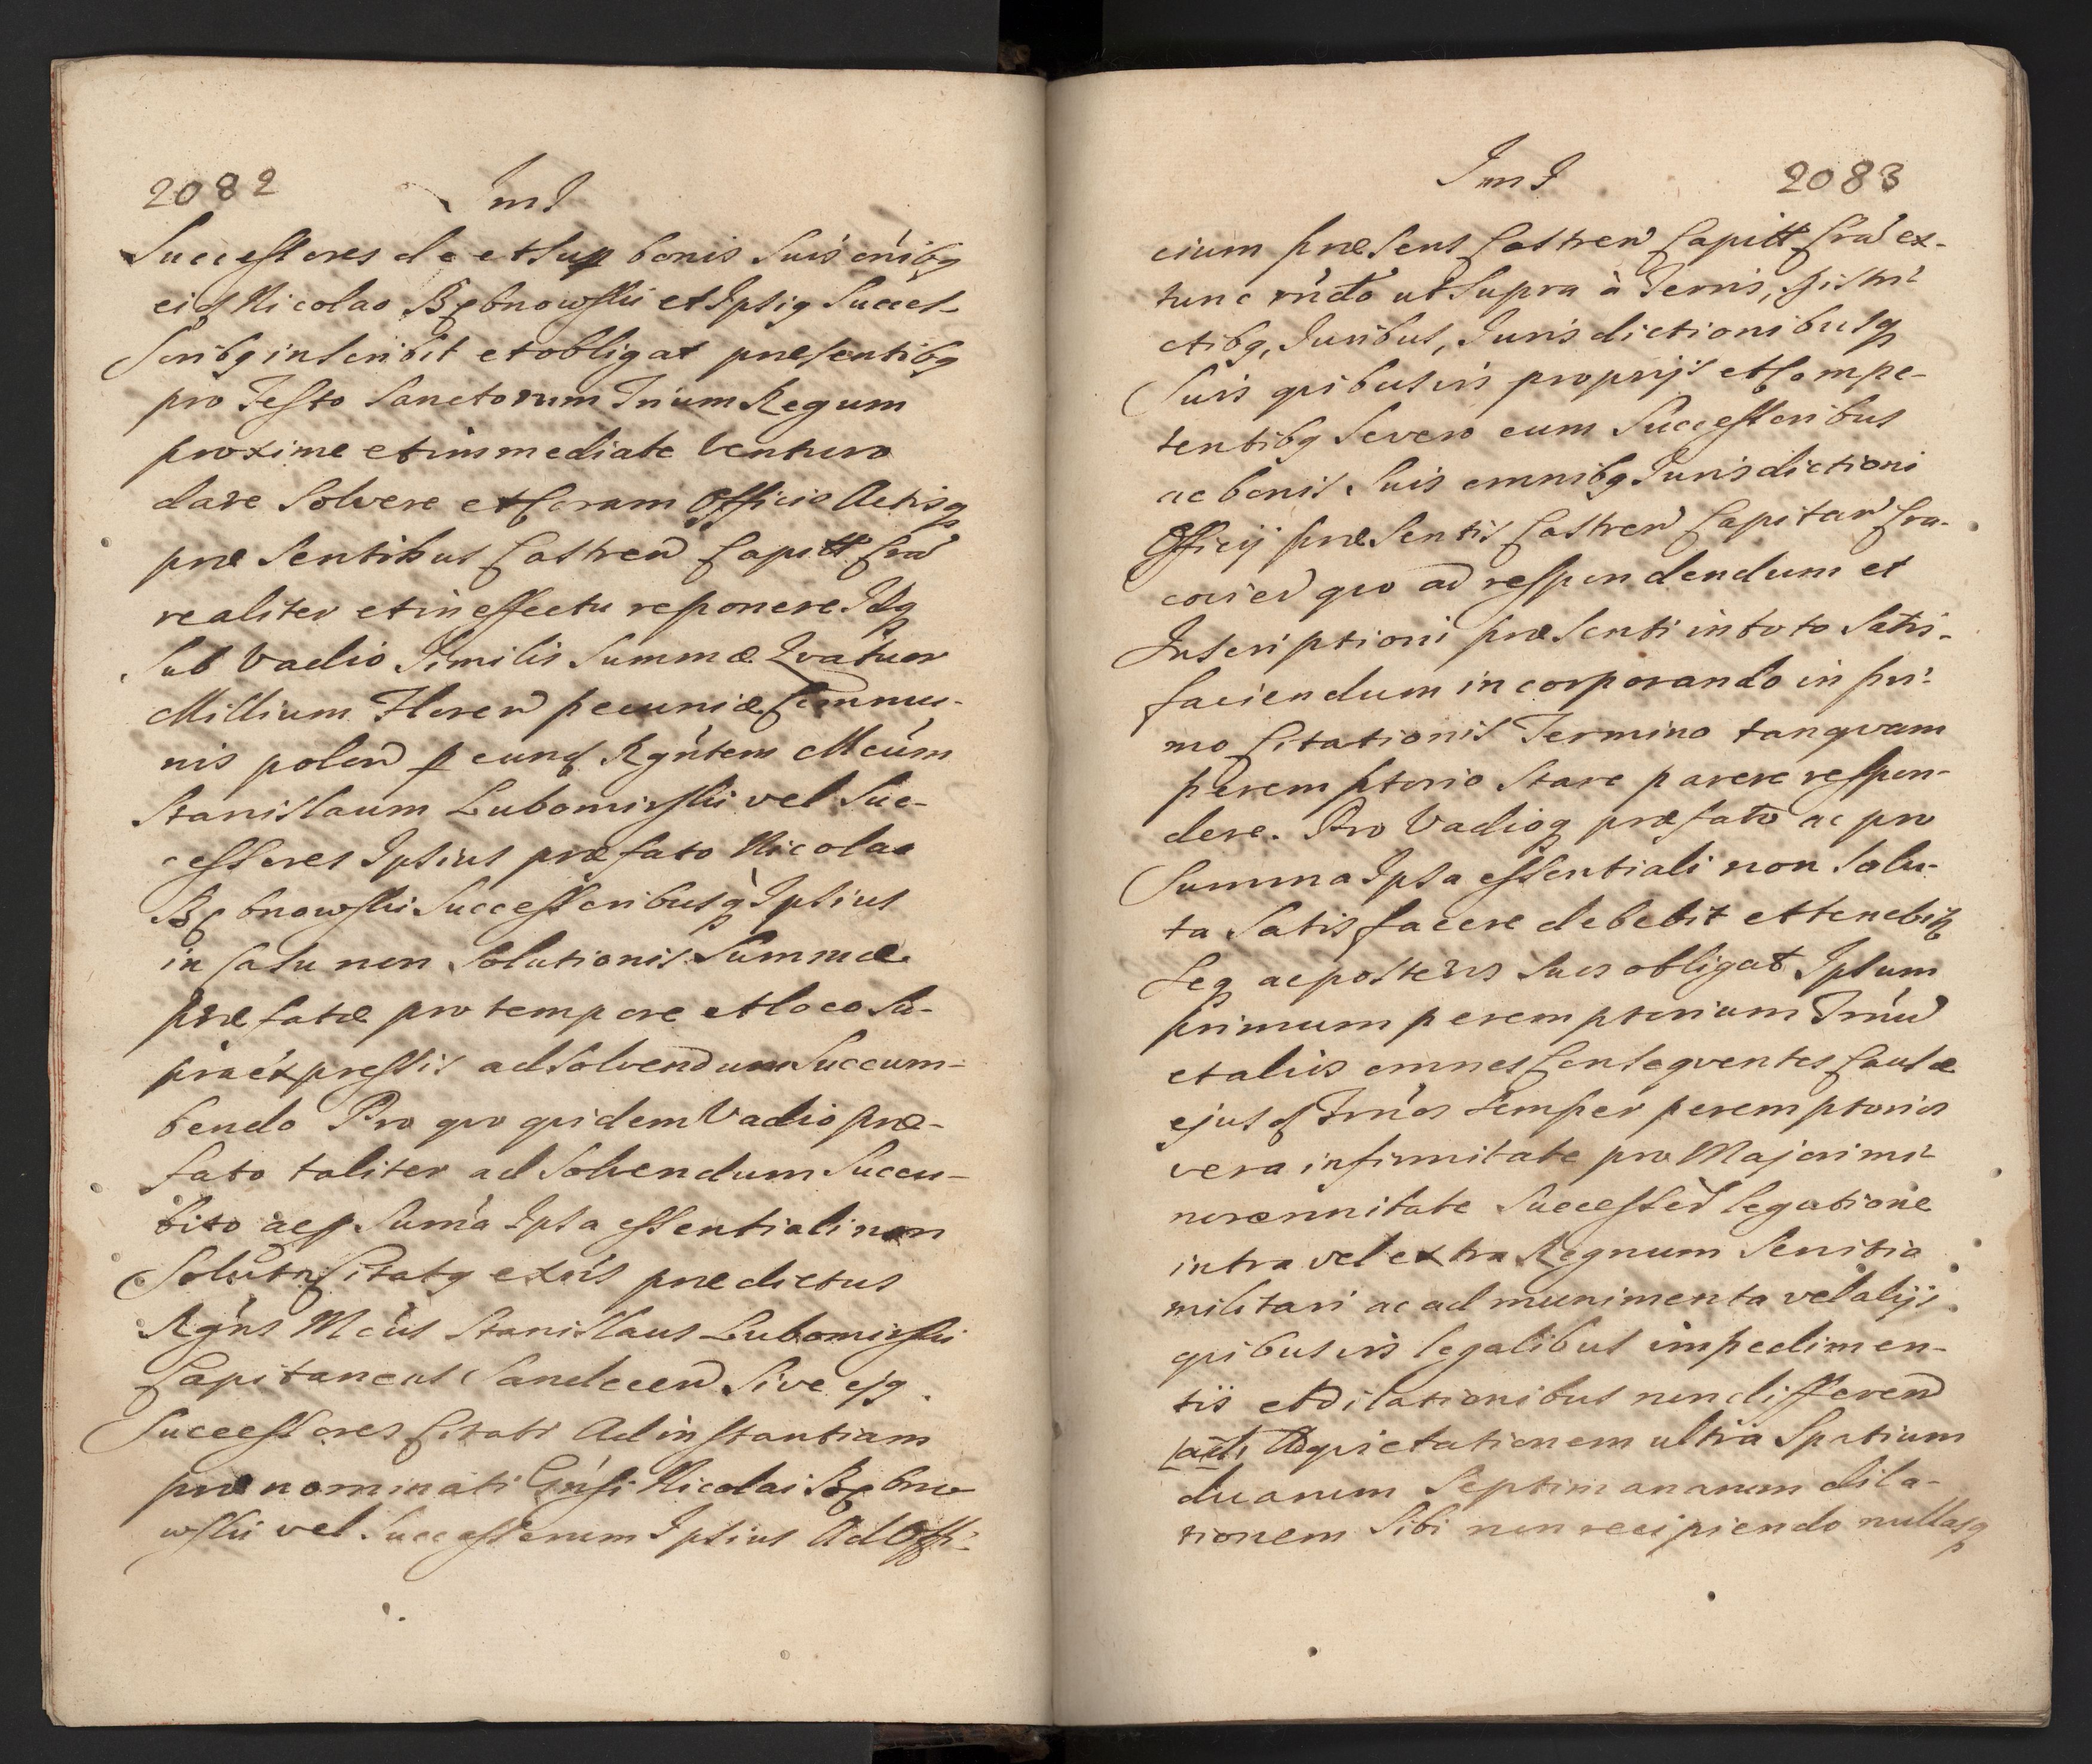 2082 ImI
Successores de et sup bonis suis oṁibq
eid Nicolao Bębnowski et Ipsiq Succes-
soribq inscribit et obligat præsentibq
pro Festo Sanctorum Trium Regum
proxime et immediate venturo
dare solvere et Coram Officio Actisq
præsentibus Castren Capitt Cra
realiter et in effectu reponere. Idq
sub Vadio similis Summæ Qvatuor
Millium Floren pecuniæ Commu-
nis polon p eund Rgn̄tem Meūm
Stanislaum Lubomirski vel Suc-
cessores Ipsius præfato Nicolao
Bębnowski Successoribusq Ipsius
in Casu non Solutionis Summæ
præfatæ pro tempore et loco su-
praexpressis ad solvendum Succum-
bendo Pro qvo qvidem Vadio præ-
fato taliter ad solvendum Succu-
bito ac p Suma Ipsa essentiali non
Soluta Citatq extis prædictus
Rgn̄s Meūs Stanislaus Lubomirski
Capitaneus Sandecen Sive ejq
Successores Citati Ad instantiam
prænominati Gn̄si Nicolai Bębno-
wski vel Successorum Ipsius Ad Offi-
ImI 2083
cium præsens Castren Capitt Cra ex-
tunc rn̄do ut Supra à Terris, Distri-
ctibq, Juribus, Jurisdictionibusq
Suis qvibusvis proprijs et Compe-
tentibq se vero cum Successoribus
ac bonis suis omnibq Jurisdictioni
Officij præsentis Castren Capitan Cra-
covien qvo ad respondendum et
Inscriptioni præsenti in toto satis-
faciendum incorporando in pri-
mo Citationis Termino tanqvam
peremptorio Stare parere respon-
dere. Pro Vadioq præfato ac pro
Summa Ipsa essentiali non Solu-
ta Satisfacere debebit et tenebitq
Seq ac posteros suos obligat Ipsum
primum peremptorium Trn̄u
et aliis omnes Conseqventes Causæ
ejusd Trn̄os semper peremptorios
vera infirmitate pro Majori mi-
norennitate Successor legatione
intra vel extra Regnum Servitia
militari ac ad munimenta vel alijs
qvibusvis legalibus impedimen-
tis et Dilationibus non differen
acti Adqvietationem ultra Spatium
duarum Septimanarum dila-
tionem Sibi non recipiendo nullasq